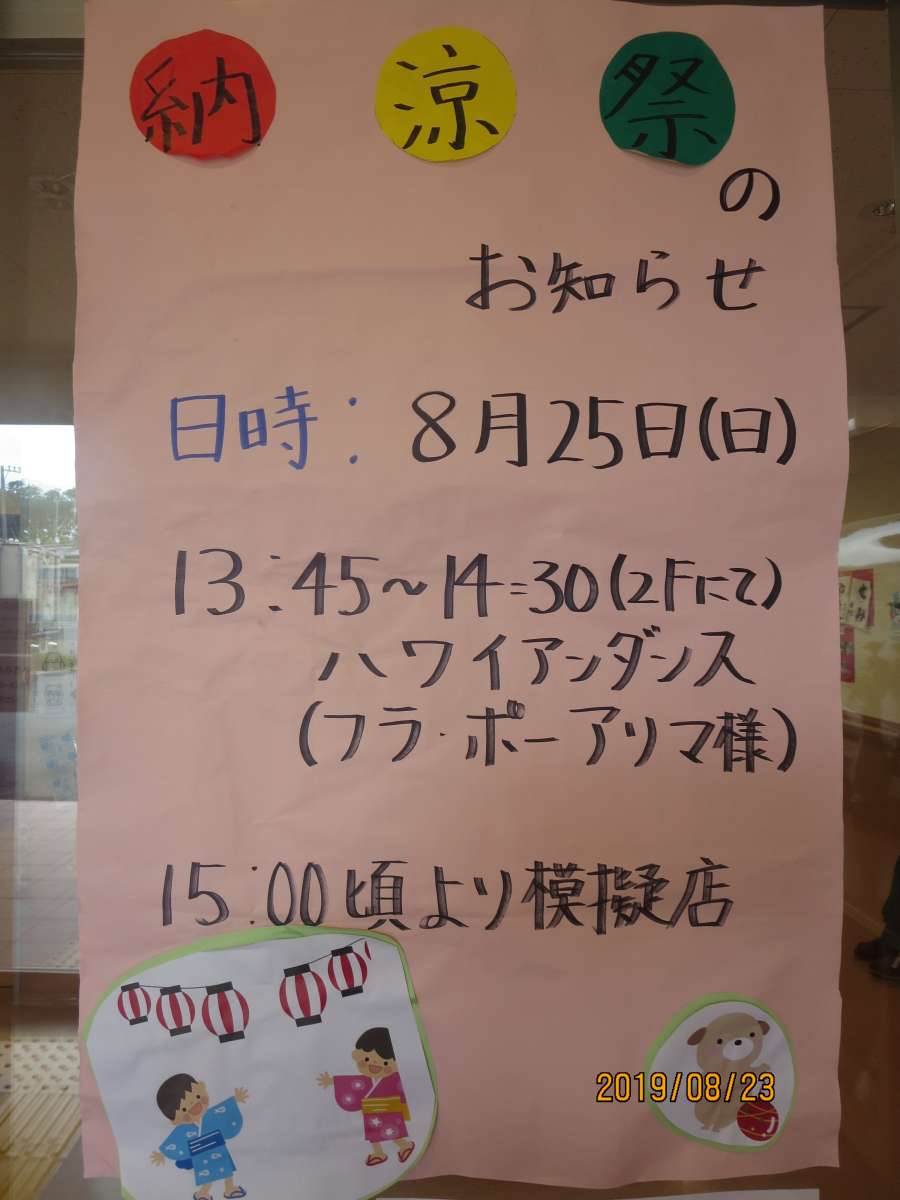 納涼祭
の
お知らせ
日時：8月25日(日)
13：45〜14：30(2Fにて)
ハワイアンダンス
(フラ・ポーアリマ様)
15：00頃より模擬店
2019/08/23